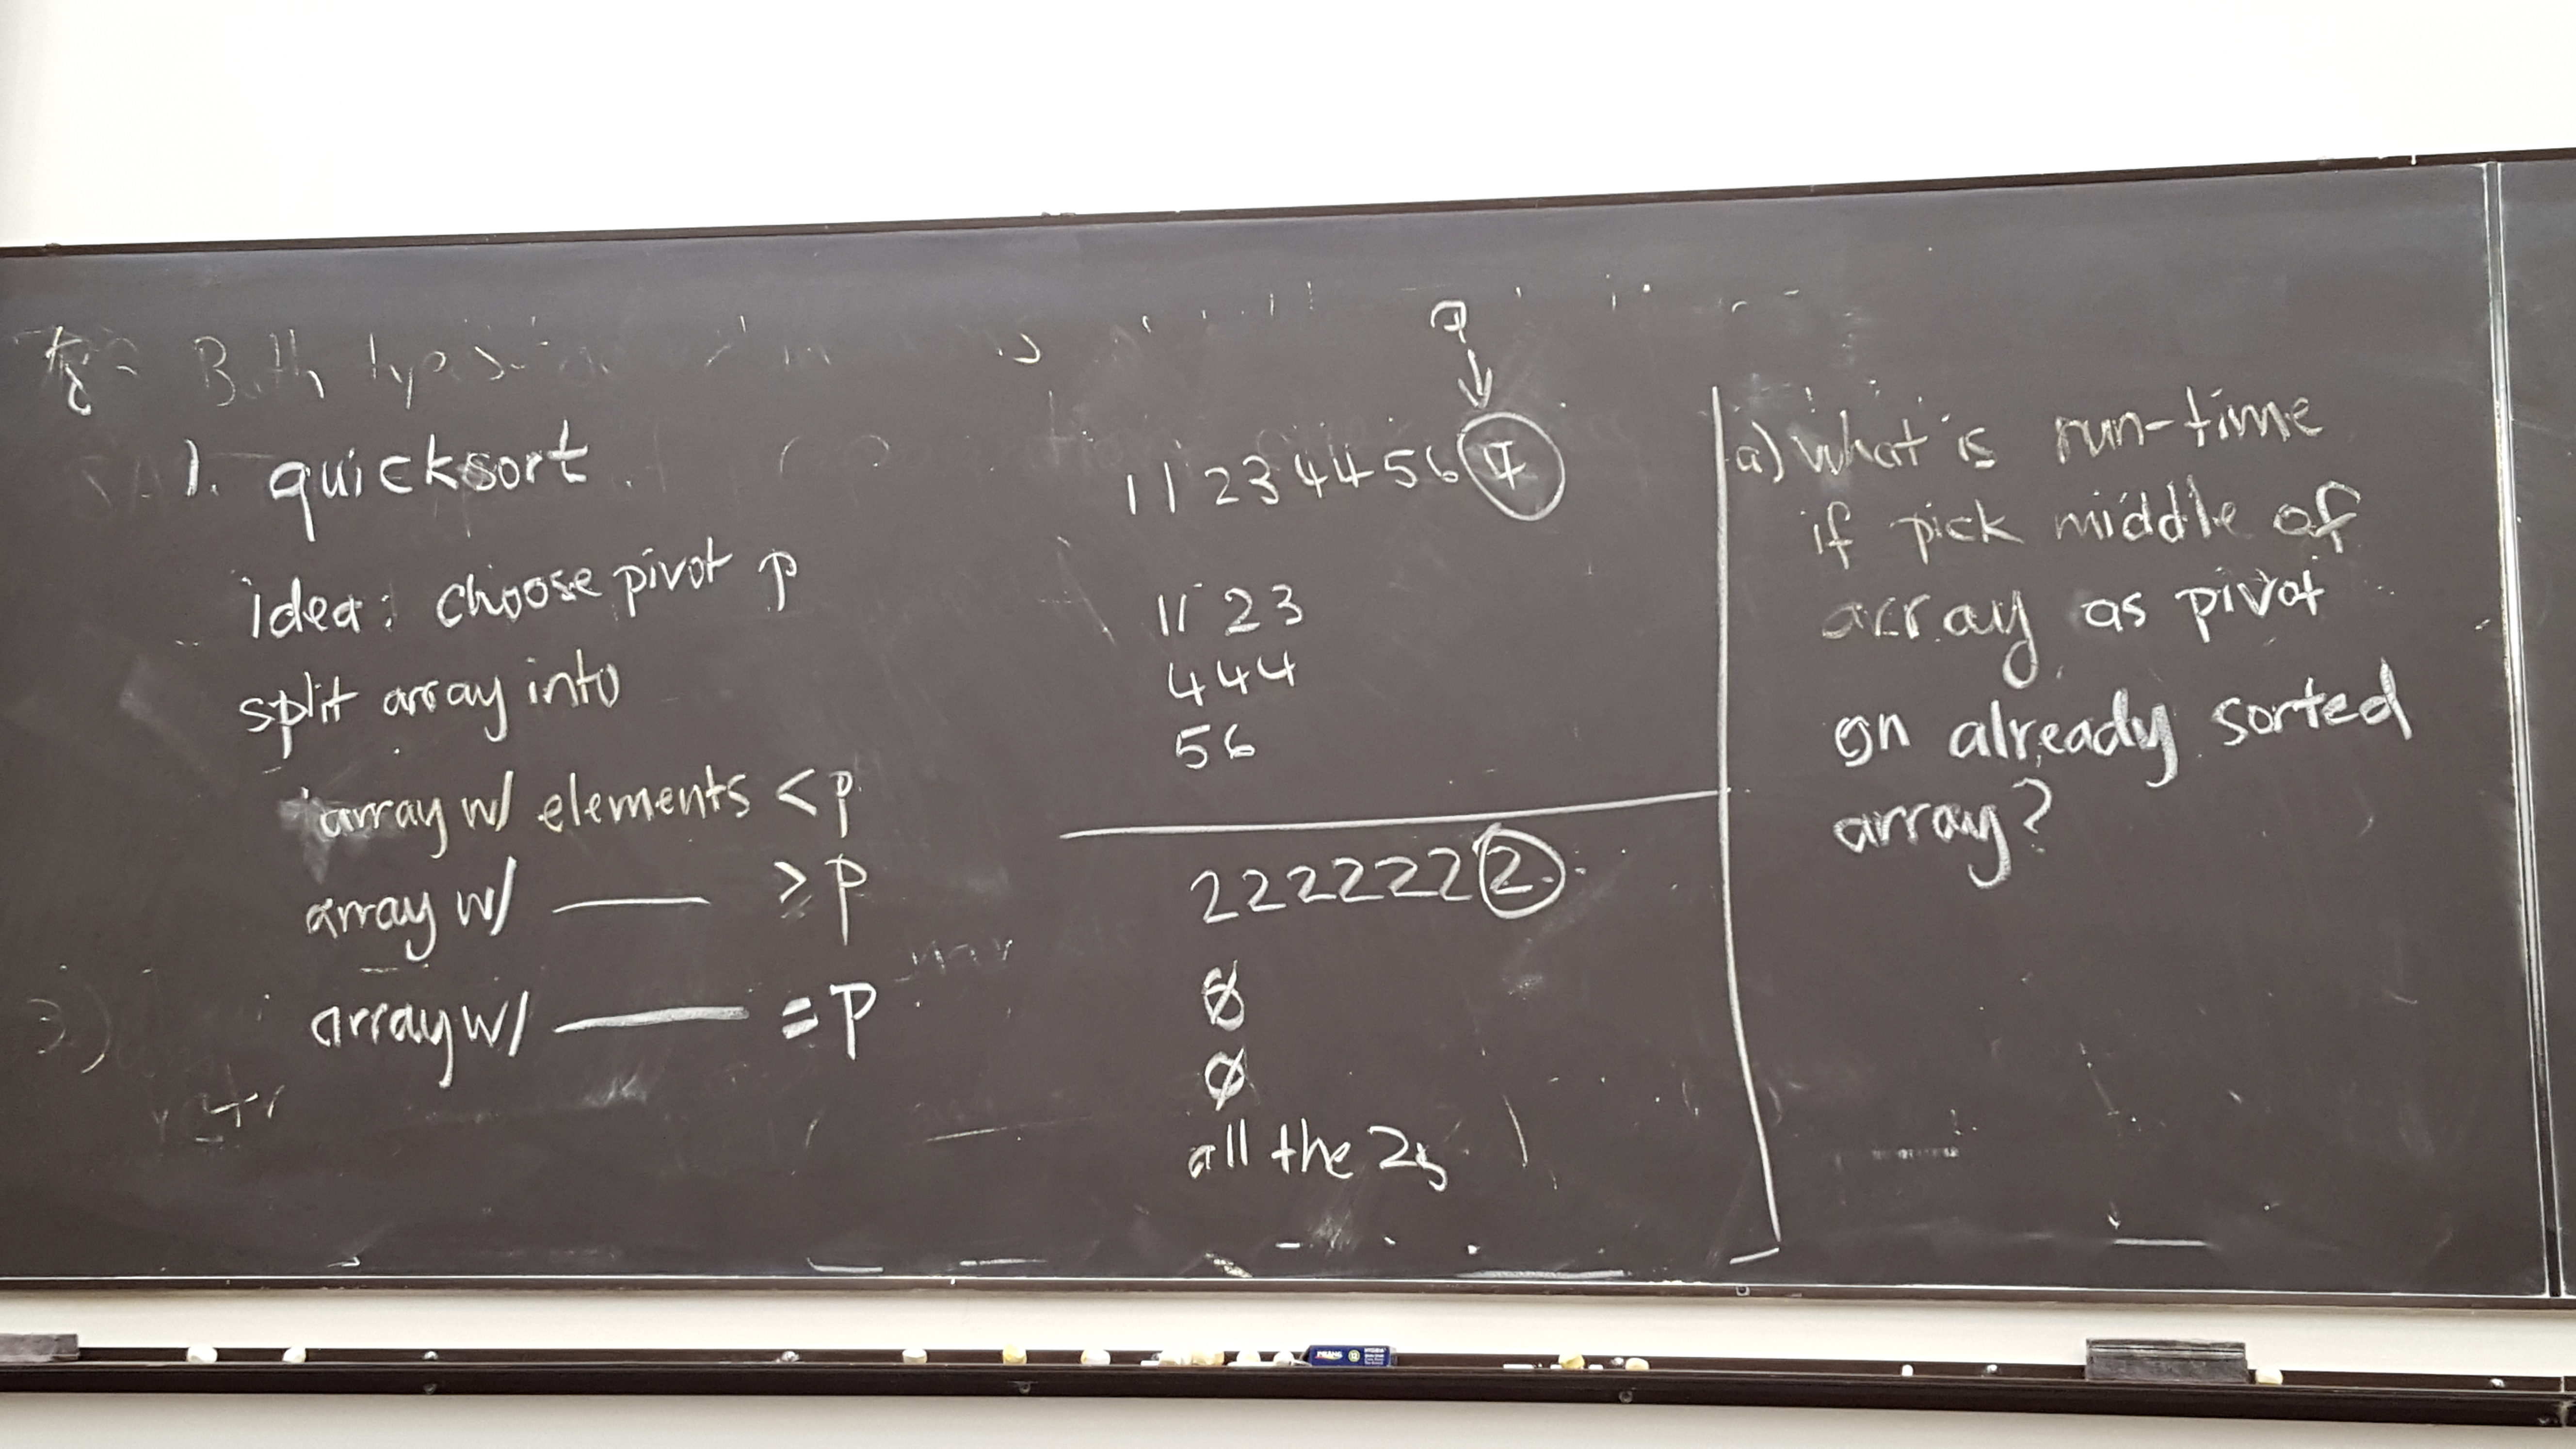 1. quicksort
idea: choose pivot p
split array into
array w/ elements < p
array w/ —— > p
array w/ —— = p
P
↓
1 1 2 3 4 4 5 6 4
11 23
444
56
2222222 2
∅
∅
all the 2s
a) what is run-time
if pick middle of
array as pivot
on already sorted
array?